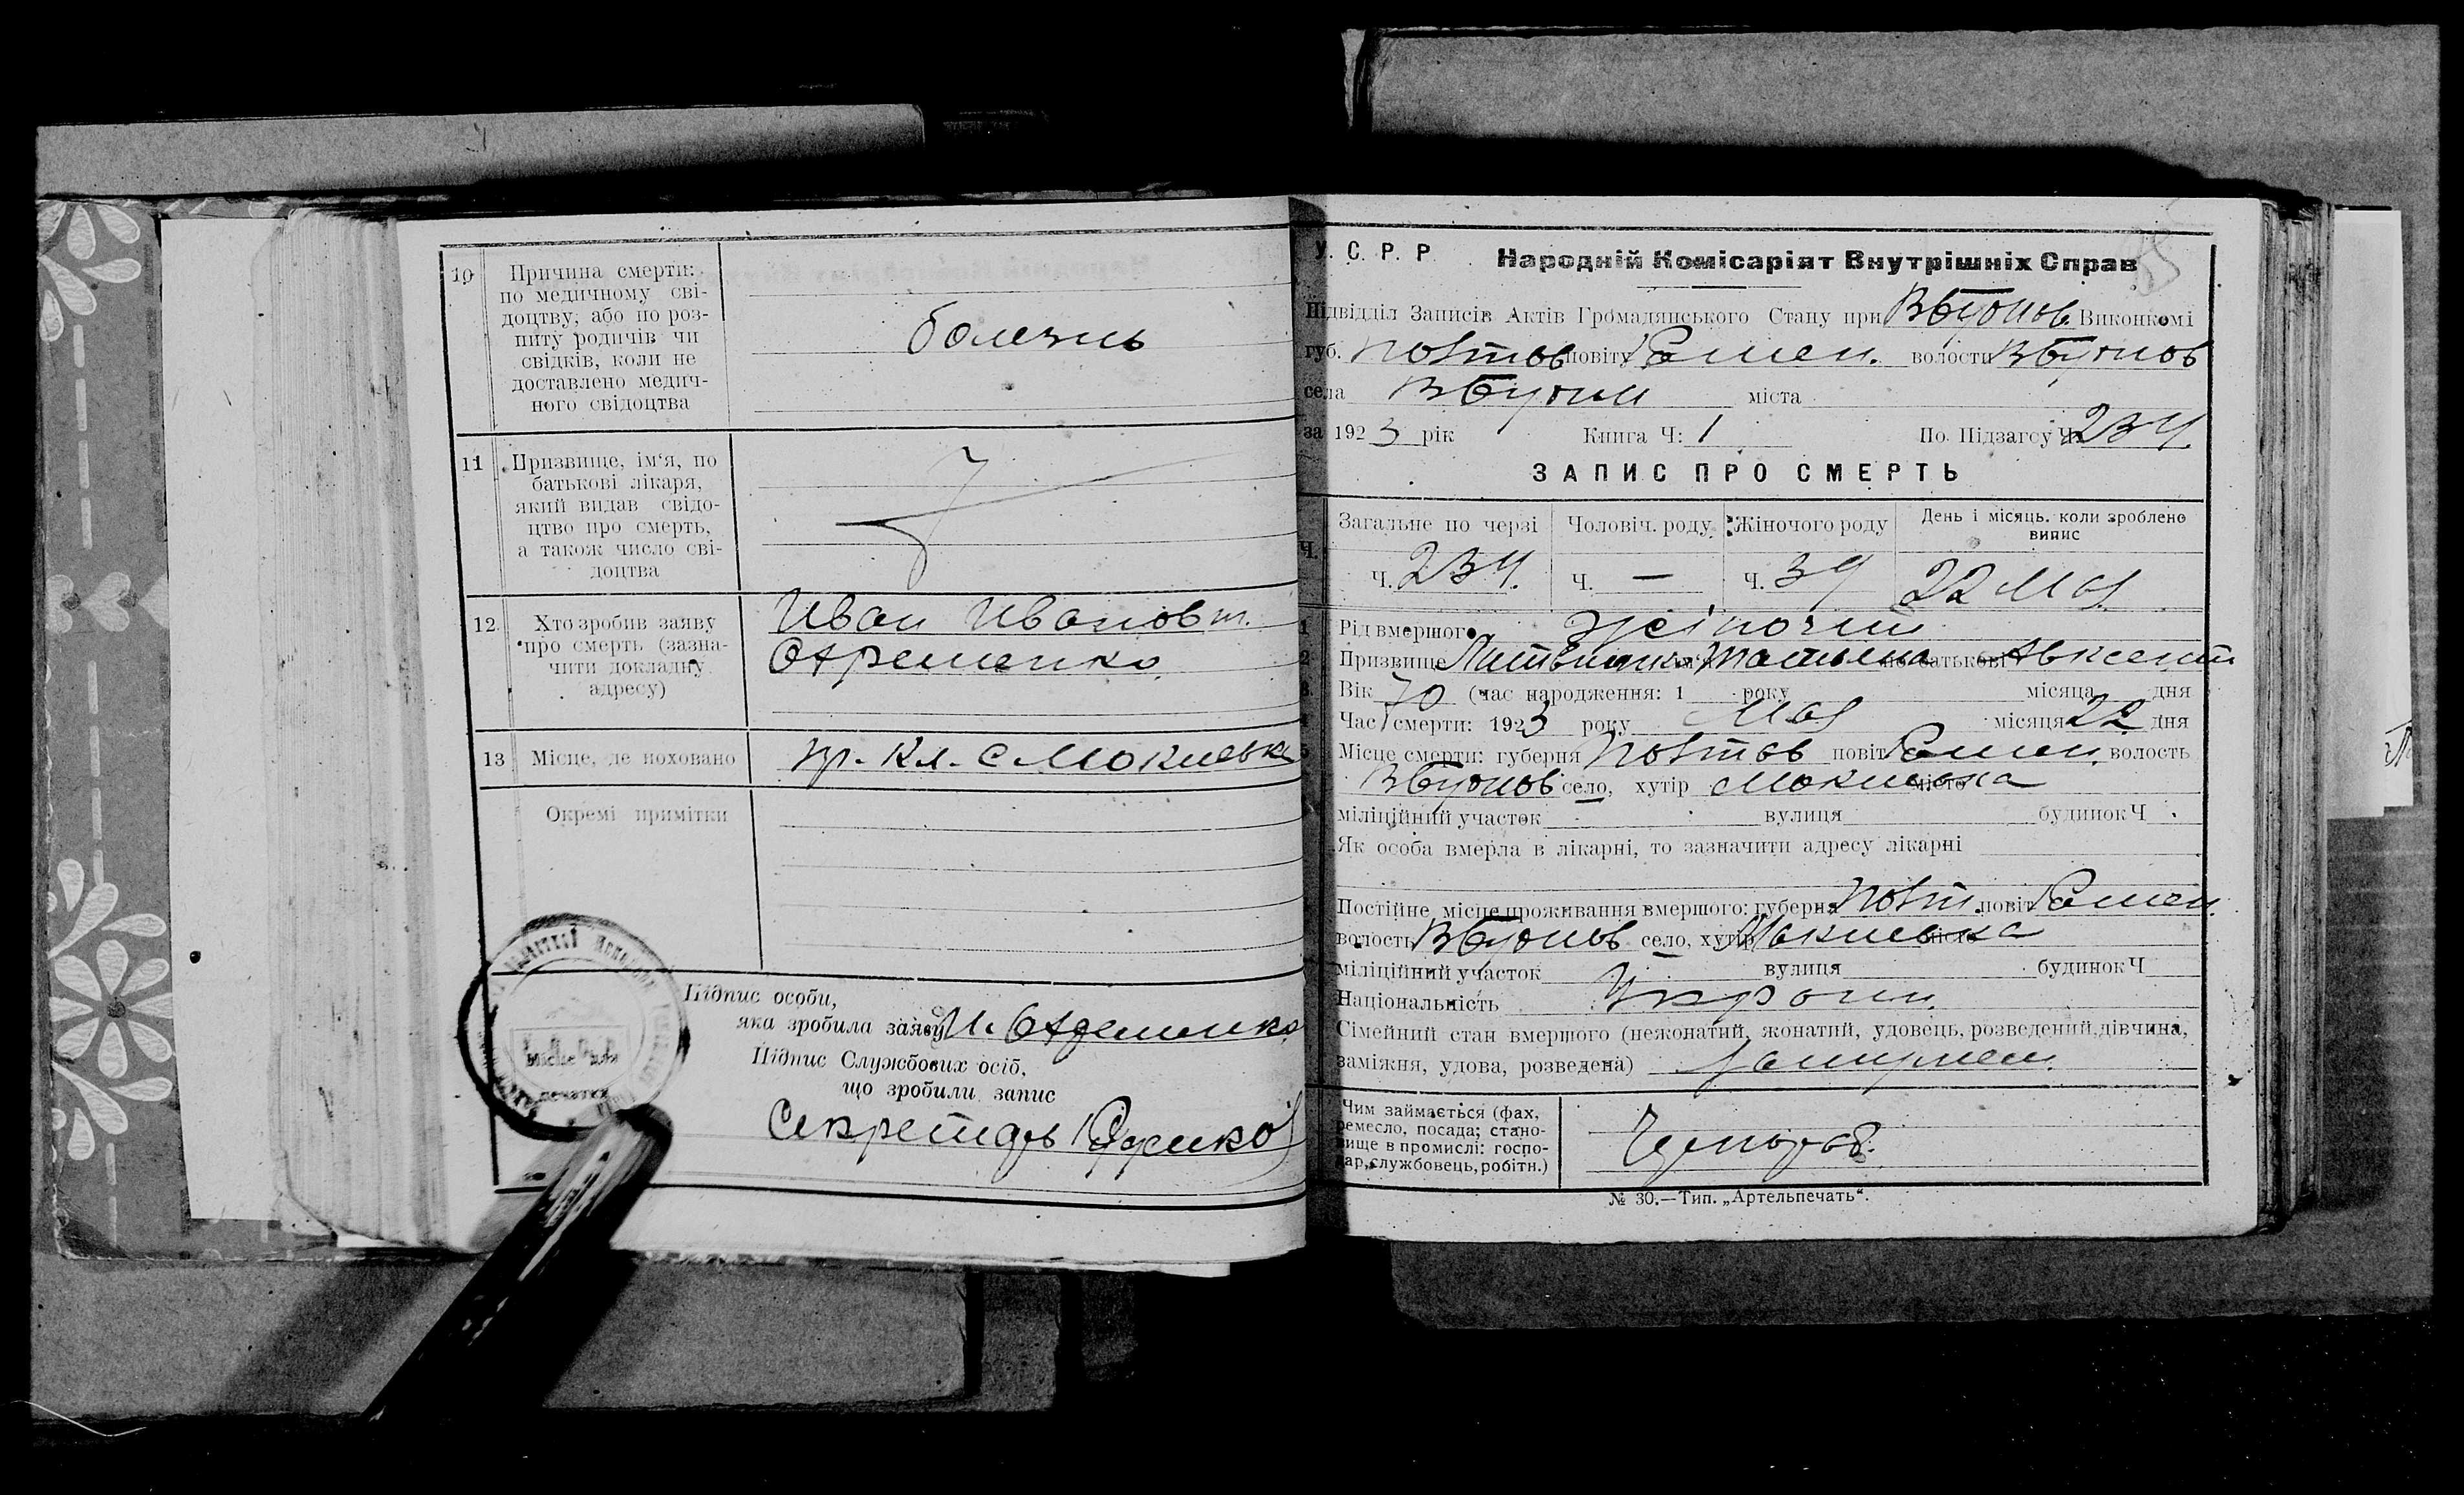 10
Причина смерти:
по медичному сві-
доцтву, або по роз-
питу родичів чи
свідків, коли не
доставлено медич-
ного свідоцтва
болезнь
11
Призвище, ім'я, по
батькові лікаря,
який видав свідо-
цтво про смерть,
а також число сві-
доцтва
12
Хто зробив заяву
про смерть (зазна-
чити докладну
адресу)
Иван Иванов
13
Місце, де поховано
пр. Кл. с Мокиевка
Окремі примітки
Підпис особи,
яка зробила заяву И.
Підпис Службових осіб,
що зробили запис
Секретарь
Місце для
печатки
У. С. Р. Р. Народній Комісаріят Внутрішніх Справ
Підвідділ Записів Актів Громадянського Стану при Виконкомі
губ. Полтов повіту Ромен. волости
села міста
за 1923 рік Книга Ч: 1 По Підзагсу Ч. 234.
ЗАПИС ПРО СМЕРТЬ
Ч. Загальне по черзі Чоловіч. роду Жіночого роду День і місяць, коли зроблено
випис
Ч. 234. Ч. — Ч. 39 22 Мая
1 Рід вмершого жіночий
2 Призвище ім'я Татьяна по батькові Авксент
3 Вік 70 (час народження: 1 року місяца дня
4 Час смерти: 1923 року Мая місяця 22 дня
5 Місце смерти: губерня Полтов повіт Ромен. волость
село, хутір Мокиевка місто
міліційний участок вулиця будинок Ч.
Як особа вмерла в лікарні, то зазначити адресу лікарні
Постійне місце проживання вмершого: губерня Полт. повіт Ромен.
волость село, хутір Мокиевка місто
міліційний участок вулиця будинок Ч
Національність Украин.
Сімейний стан вмершого (нежонатий, жонатий, удовець, розведений, дівчина,
заміжня, удова, розведена)
Чим займається (фах,
ремесло, посада; стано-
вище в промислі: госпо-
дар, службовець, робітн.)
№ 30.—Тип. „Артельпечать“.